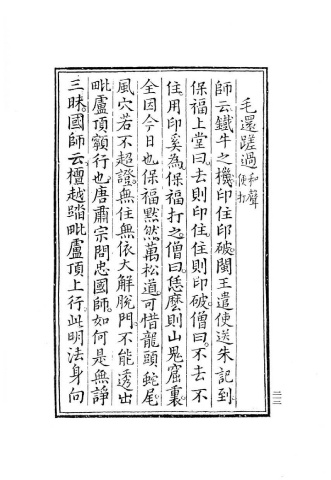 毛還蹉過和聲便打
師云鐵牛之機印住印破閩王遣使送朱記到
保福上堂曰去則印住住則印破僧曰不去不
住用印奚為保福打之僧曰恁麼則山鬼窟裏
全因今日也保福黙然萬松道可惜龍頭蛇尾
風穴若不超證無住無依大解脫門不能透出
毗盧頂𩕳行也唐肅宗問忠國師如何是無諍
三昧國師云檀越踏毗盧頂上行此明法身向
二二